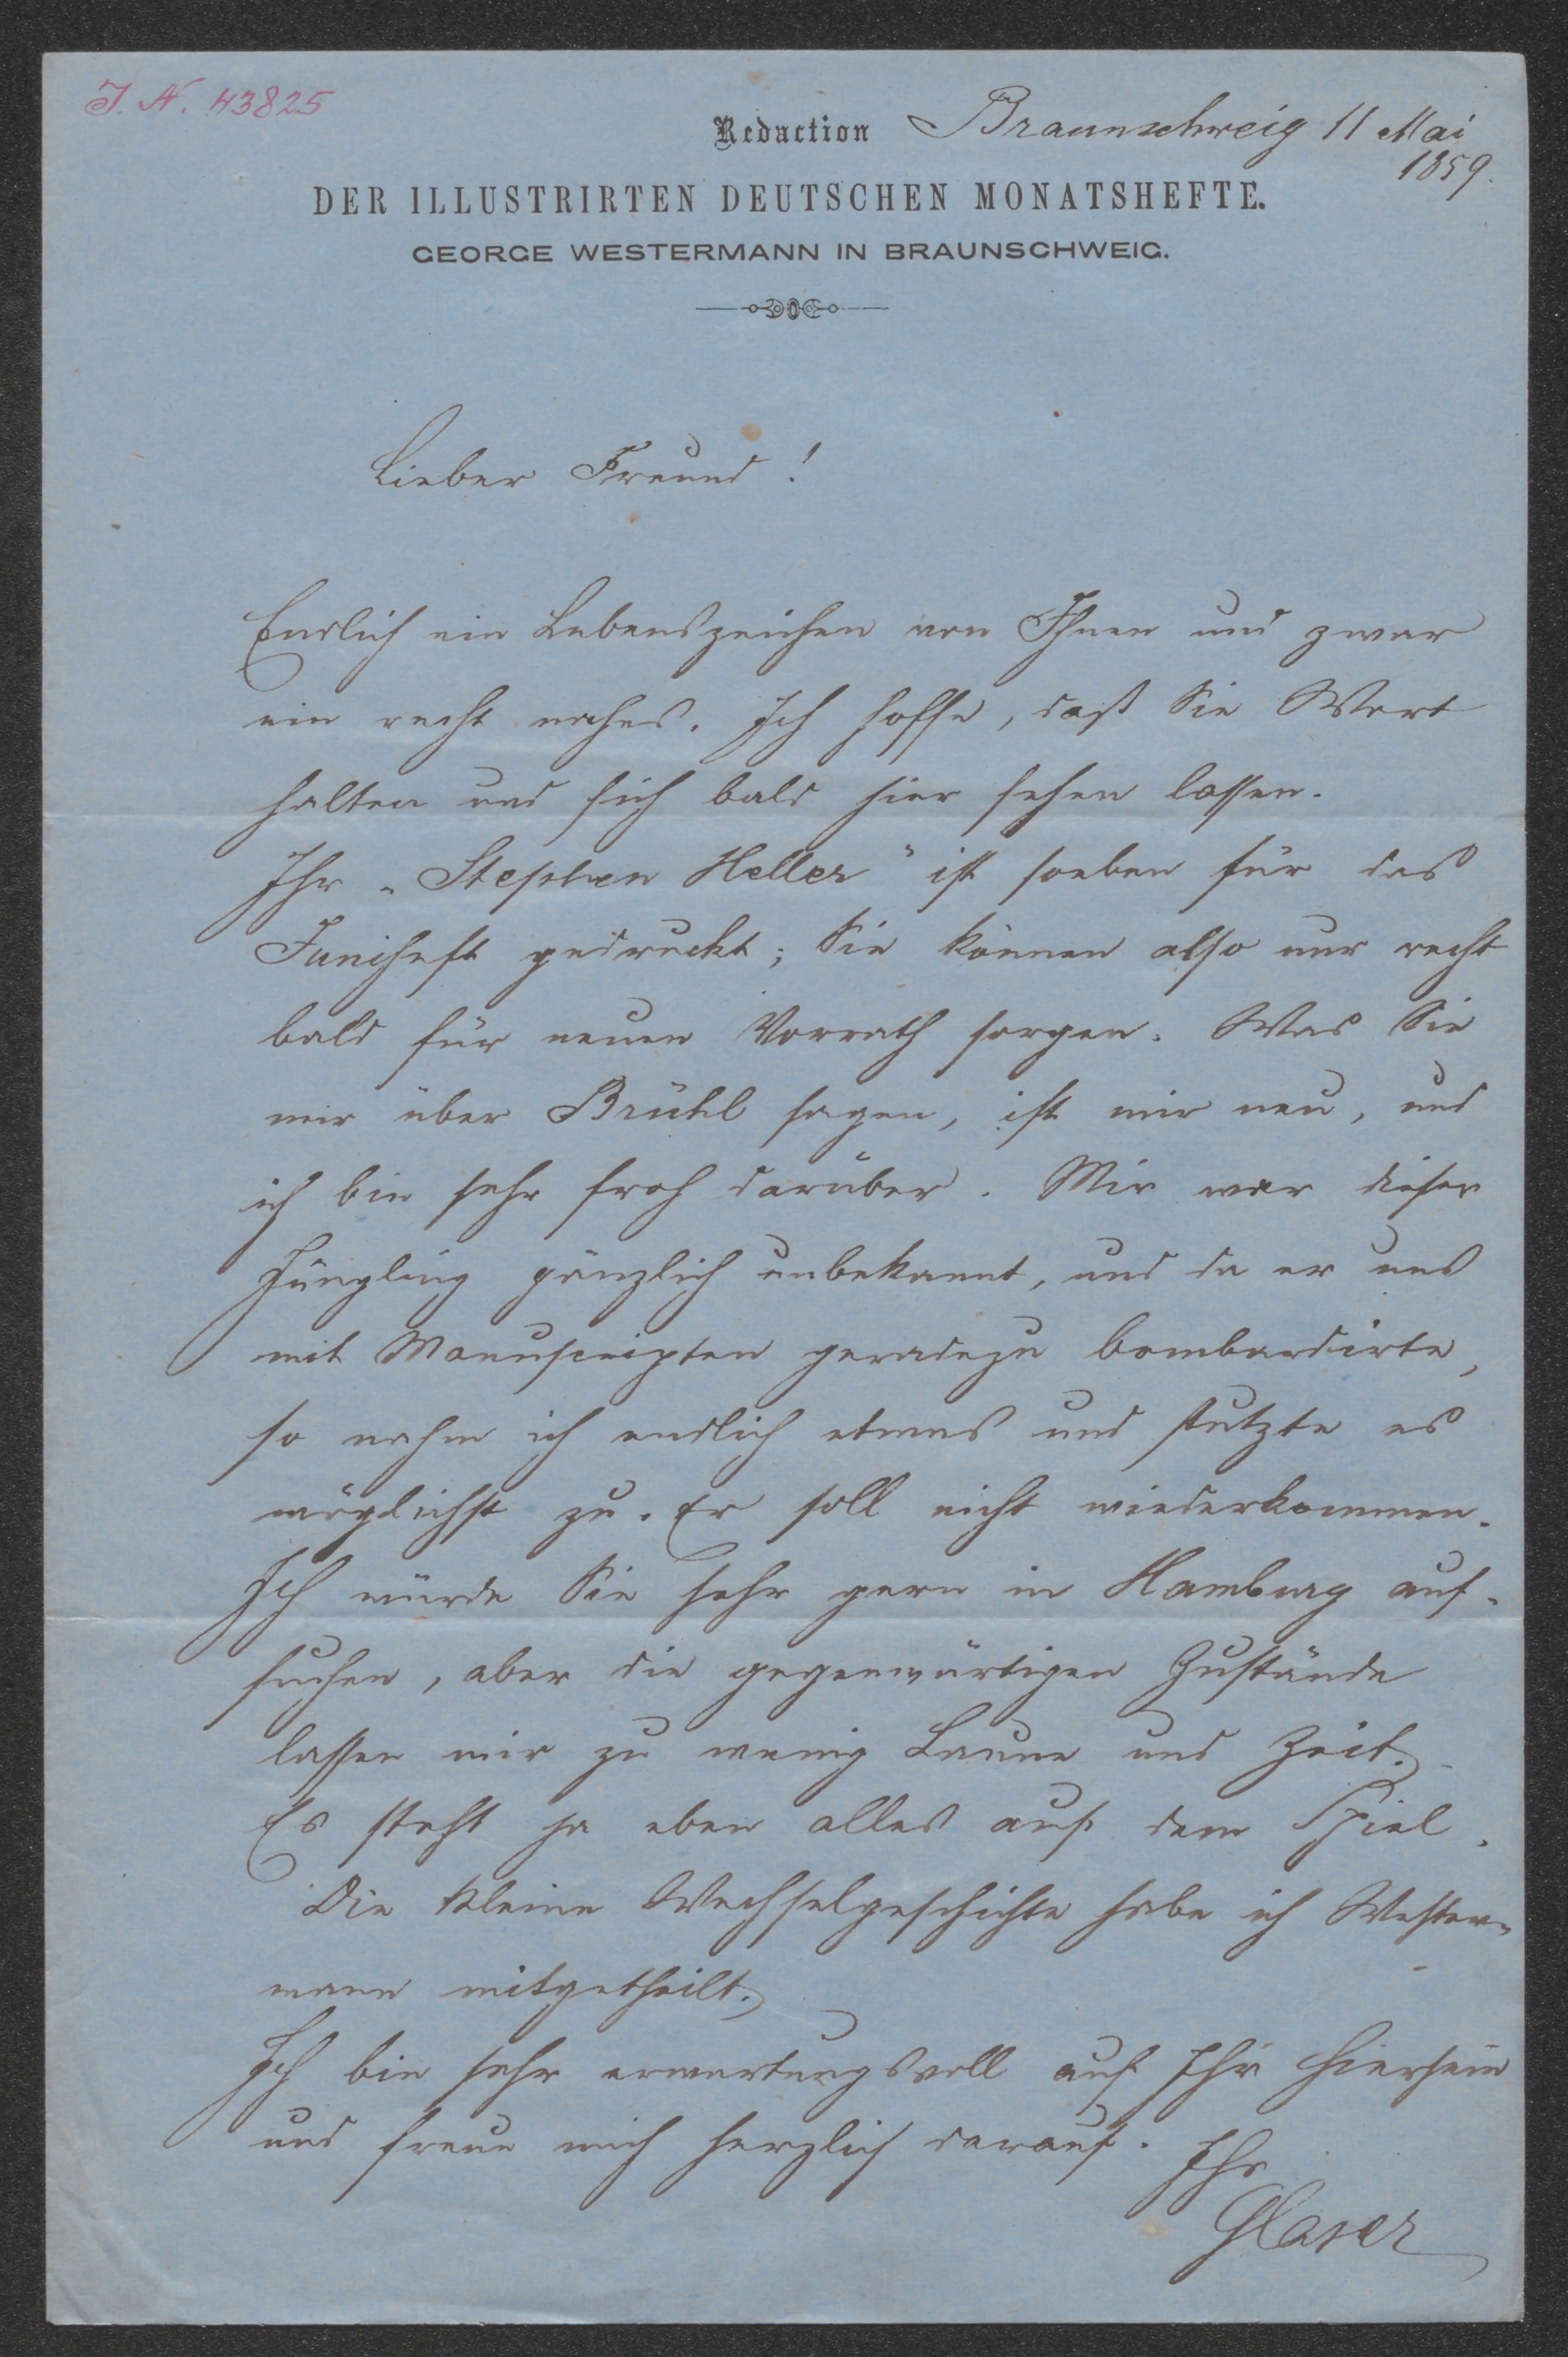 J. N. 43825
Redaction Braunschweig 11 Mai
1859.
DER ILLUSTRIRTEN DEUTSCHEN MONATSHEFTE.
GEORGE WESTERMANN IN BRAUNSCHWEIG.
Lieber Freund!
Endlich ein Lebenszeichen von Ihnen und zwar
ein recht nahes. Ich hoffe, daß Sie Wort
halten und sich bald hier sehen lassen.
Ihr „Stephen Heller" ist soeben für das
Juniheft gedruckt; Sie können also nur recht
bald für neuen Vorrath sorgen. Was Sie
mir über Brühl sagen, ist mir neu, und
ich bin sehr froh darüber. Mir war dieser
Jüngling gänzlich unbekannt, und da er uns
mit Manuscripten geradezu bombardirte,
so nahm ich endlich etwas und stutzte es
möglichst zu. Er soll nicht wiederkommen.
Ich würde Sie sehr gern in Hamburg auf-
suchen, aber die gegenwärtigen Zustände
lassen mir zu wenig Laune und Zeit.
Es steht ja eben alles auf dem Spiel.
Die kleine Wechselgeschichte habe ich Wester-
mann mitgetheilt.
Ich bin sehr erwartungsvoll auf Ihr Hiersein
und freue mich herzlich darauf. Ihr
Glaser